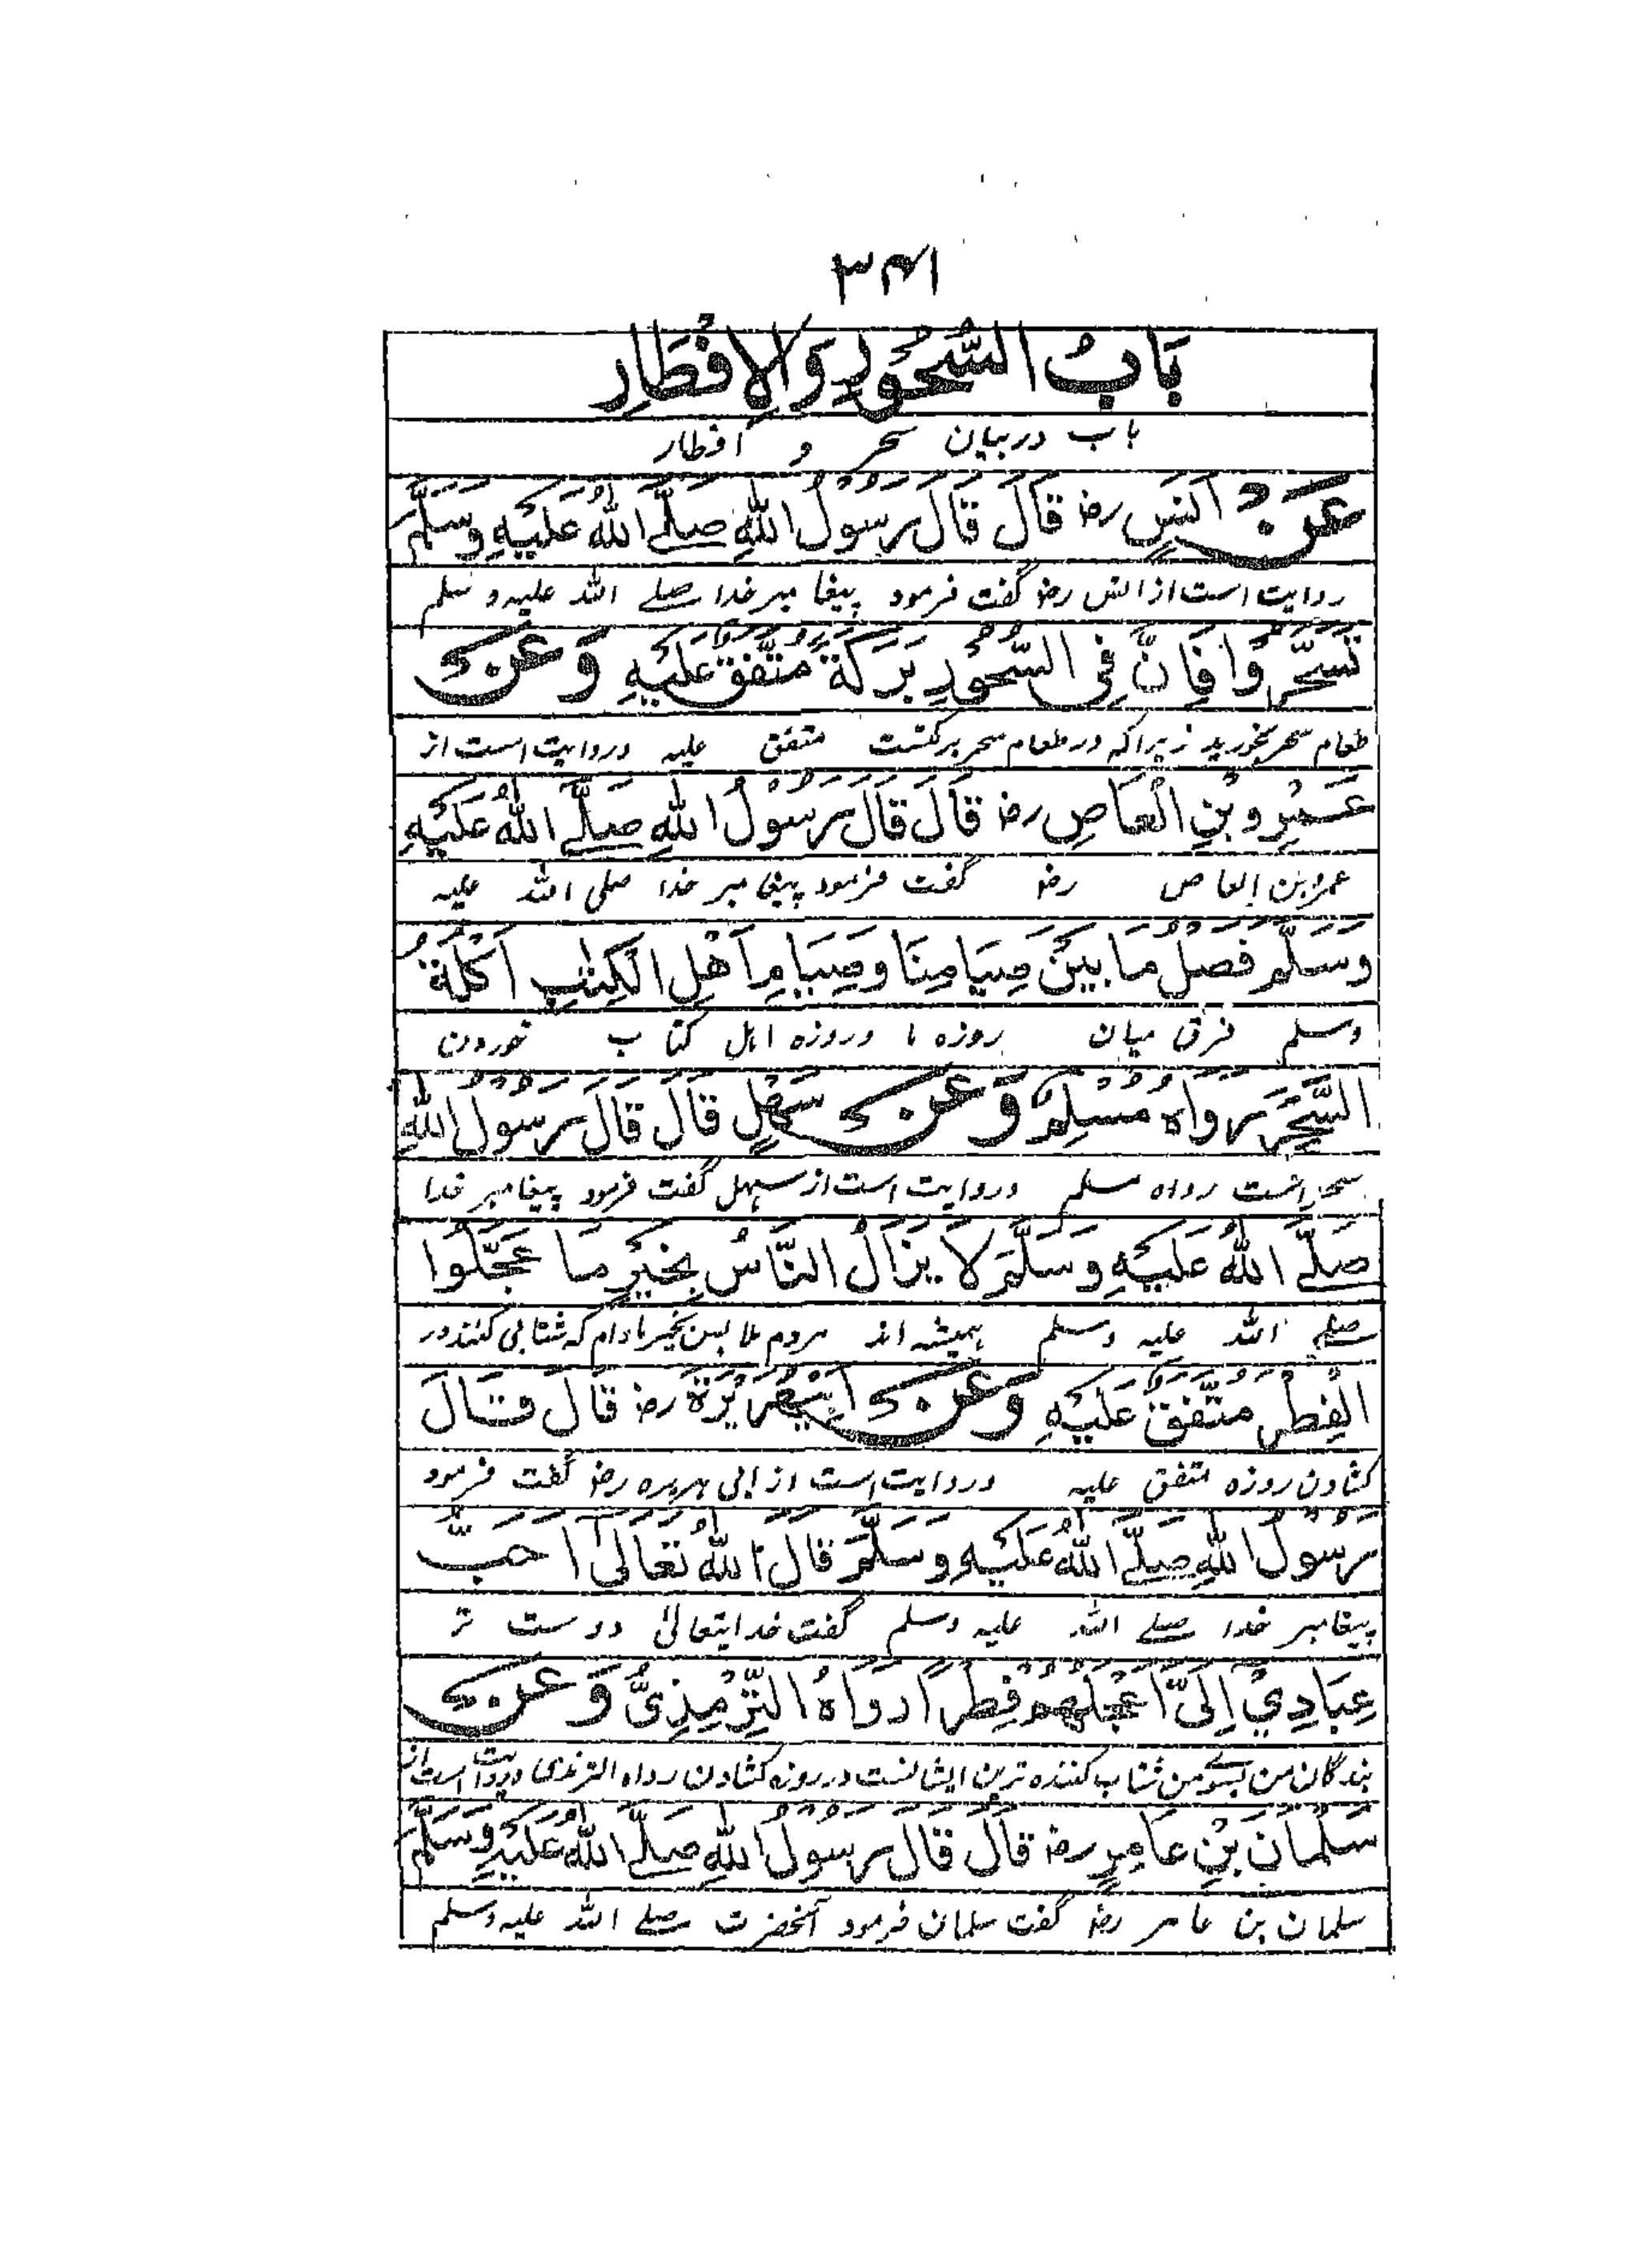 ۳۴۱
بَابُ السُّحُوْرِ وَالْاِفْطَارِ
باب در بیان سحر و افطار
عَنْ اَنَسٍ رض قَالَ قَالَ رَسُوْلُ اللّٰهِ صَلَّے اللّٰهُ عَلَیْهِ وَسَلَّمَ
روایت است از انس رض گفت فرمود پیغامبر خدا صلے اللّٰه علیه و سلم
تَسَحَّرُوْا فَاِنَّ فِی السُّحُوْرِ بَرَكَةً مُتَّفَقٌ عَلَیْهِ وَعَنْ
طعام سحر بخورید زیرا که در طعام سحر برکتست متفق علیه و روایت است از
عَمْرِو بْنِ الْعَاصِ رض قَالَ قَالَ رَسُوْلُ اللّٰهِ صَلَّے اللّٰهُ عَلَیْهِ
عمرو بن العاص رض گفت فرمود پیغامبر خدا صلی اللّٰه علیه
وَسَلَّمَ فَصْلُ مَا بَیْنَ صِیَامِنَا وَصِیَامِ اَهْلِ الْكِتٰبِ اَكْلَةُ
وسلم فرق میان روزه ما و روزه اهل کتاب خوردن
السَّحَرِ رَوَاهُ مُسْلِمٌ وَعَنْ سَهْلٍ قَالَ قَالَ رَسُوْلُ اللّٰهِ
سحر است رواه مسلم و روایت است از سهل گفت فرمود پیغامبر خدا
صَلَّے اللّٰهُ عَلَیْهِ وَسَلَّمَ لَا یَزَالُ النَّاسُ بِخَیْرٍ مَا عَجَّلُوا
صلے اللّٰه علیه وسلم همیشه اند مردم ملابس بخیر مادام که شتابی کنند در
الْفِطْرَ مُتَّفَقٌ عَلَیْهِ وَعَنْ اَبِیْ هُرَیْرَةَ رض قَالَ قَالَ
کشادن روزه متفق علیه و روایت است از ابی هریره رض گفت فرمود
رَسُوْلُ اللّٰهِ صَلَّے اللّٰهُ عَلَیْهِ وَسَلَّمَ قَالَ اللّٰهُ تَعَالٰی اَحَبُّ
پیغامبر خدا صلے اللّٰه علیه وسلم گفت خدایتعالیٰ دوست تر
عِبَادِیْ اِلَیَّ اَعْجَلُهُمْ فِطْرًا رَوَاهُ التِّرْمِذِیُّ وَعَنْ
بندگان من بسوے من شتاب کننده ترین ایشانست در روزه کشادن رواه الترمذی و روایت است از
سَلْمَانَ بْنِ عَامِرٍ رض قَالَ قَالَ رَسُوْلُ اللّٰهِ صَلَّے اللّٰهُ عَلَیْهِ وَسَلَّمَ
سلمان بن عامر رض گفت سلمان فرمود آنحضرت صلے اللّٰه علیه وسلم